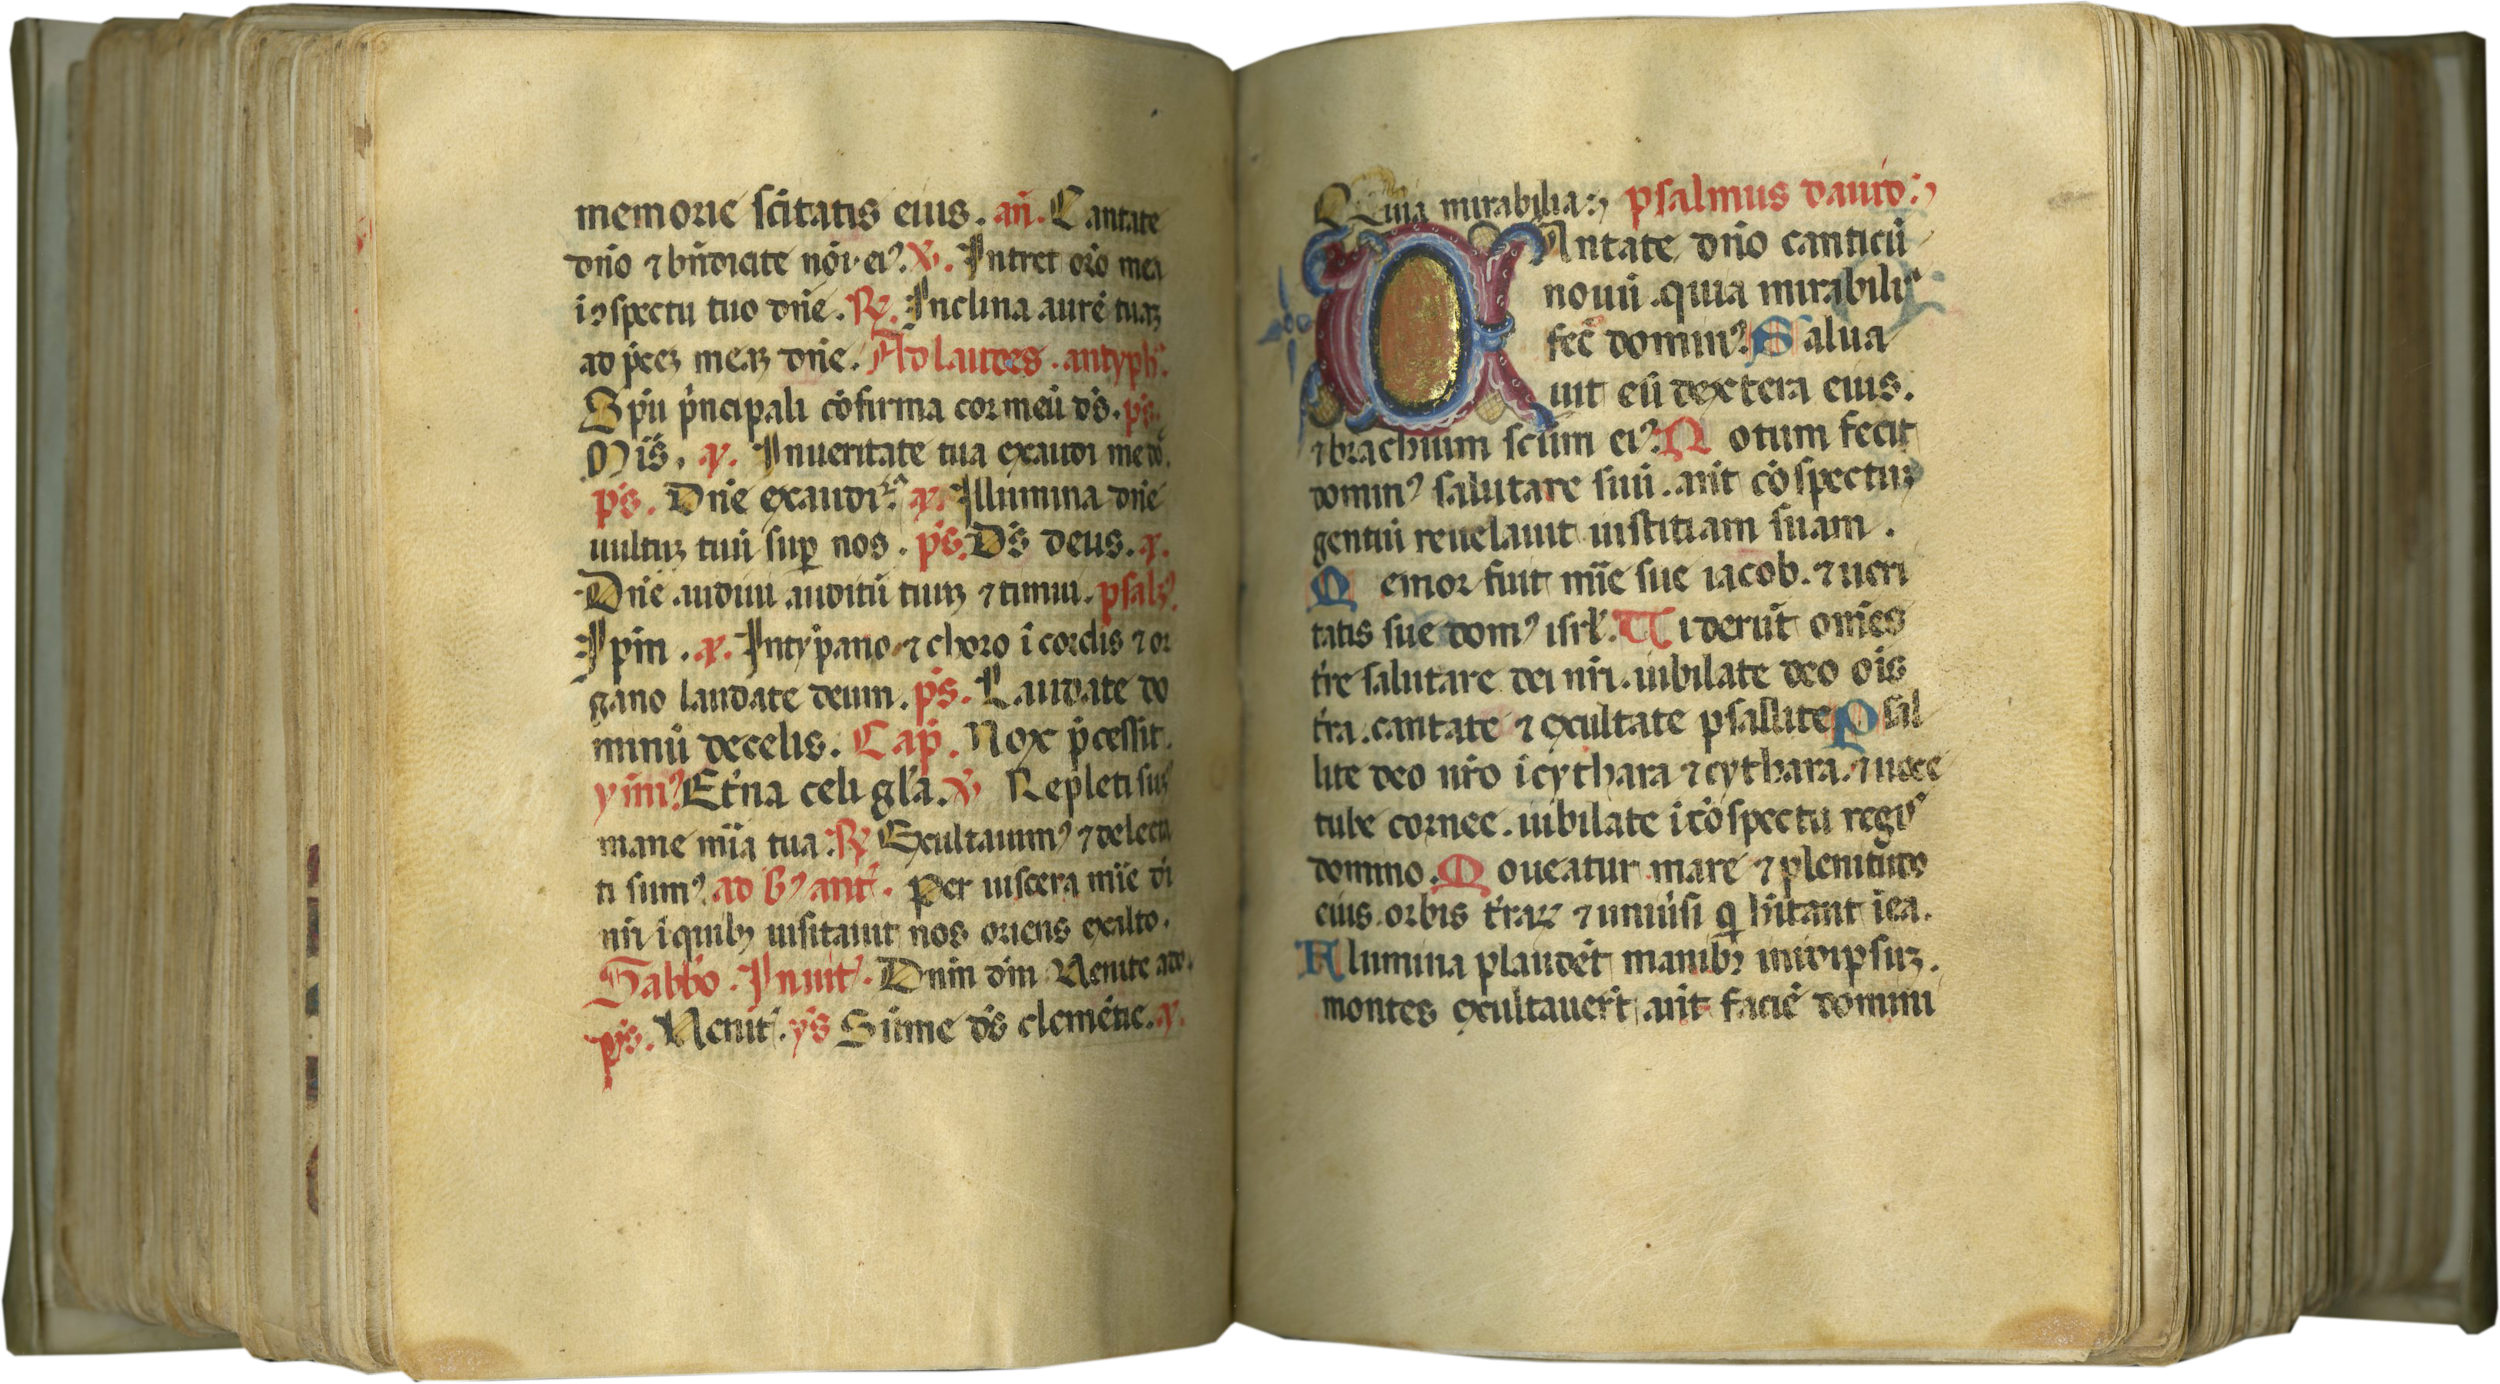 memorie sc̄itatis eius. an̄. Cantate
dn̄o ⁊ bn̄dicite nōi ei⁹. ℣. Intret orō mea
i ɔspectu tuo dn̄e. ℟. Inclina aurē tuaꝫ
ad p̄ceꝫ meaꝫ dn̄e. Ad laudes. antyph̄.
Spū p̄ncipali cōfirma cor meū d̄s. p̄s.
Mis̄. ꝟ. In ueritate tua exaudi me
p̄s. Dn̄e exaudi. ꝟ. Illumina dn̄e
uultuꝫ tuū suꝑ nos. p̄s. D̄s deus. ꝟ.
Dn̄e audiui auditū tuuꝫ ⁊ timui. psal⁹.
Ipm̄. ꝟ. In tympano ⁊ choro ī cordis ⁊ or
gano laudate deum. p̄s. Laudate do
minū de celis. Cap̄. Nox p̄cessit.
ym̄⁹. Et̄na celi gl̄a. ℣ Repleti sum⁹
mane mīa tua. ℟ Exultauim⁹ ⁊ delecta
ti sum⁹. ad b⁹ ant̄. Per uiscera mīe di
nr̄i ī quibꝫ uisitauit nos oriens exalto.
Sabb̄o. Inuit̄. Dnm̄ dm̄ Venite ado.
p̄s. Venit̄. ys̄ Sūme d̄s clemētie. ꝟ.
Quia mirabilia. psalmus dauid.
CAntate dn̄o canticū
nouū. quia mirabilia
fec̄ domin⁹. Salua
uit eū dextera eius.
⁊ brachium sc̄um ei⁹. Notum fecit
domin⁹ salutare suū. an̄t cōspectuꝫ
gentiū reuelauit iustitiam suam.
Memor fuit mīe sue iacob. ⁊ ueri
tatis sue dom⁹ isrl̄. Viderūt om̄es
t̄re salutare dei nr̄i. iubilate deo oīs
t̄ra. cantate ⁊ exultate psallite. Psal
lite deo nr̄o ī cythara ⁊ cythara. ⁊ uoce
tube cornee. iubilate ī cōspectu regis
domino. Moueatur mare ⁊ plenitudo
eius. orbis t̄raꝝ ⁊ uniūsi q̄ hītant ī ea.
Flumina plaudēt manibꝫ in idipsuꝫ.
montes exultauer̄t an̄t faciē domini